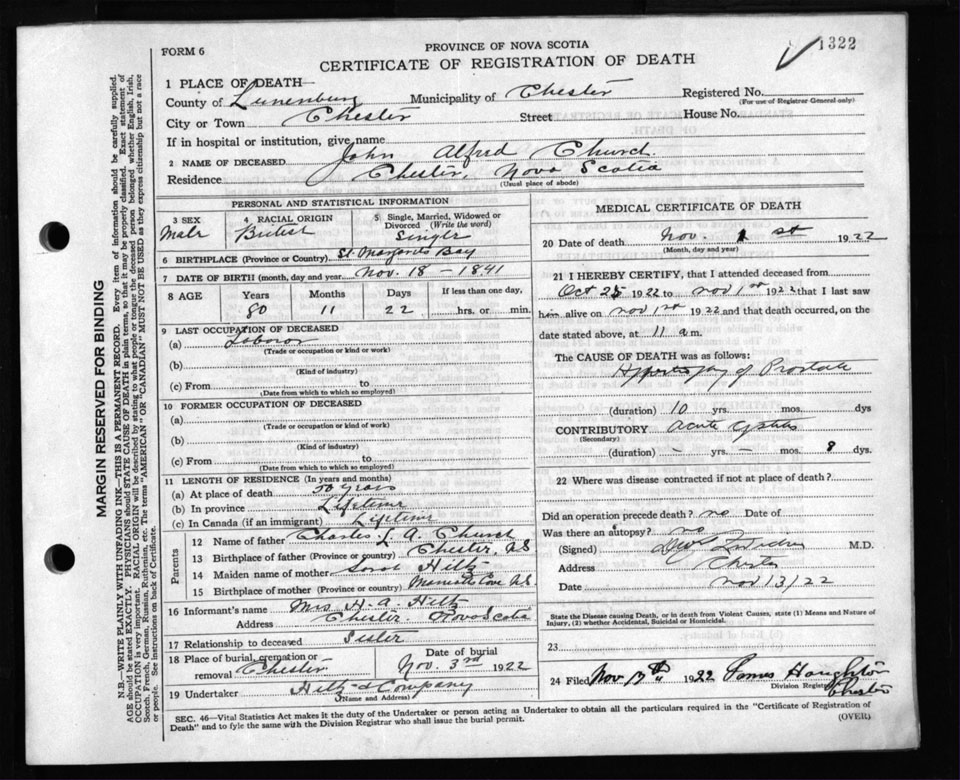 FORM 6
PROVINCE OF NOVA SCOTIA
CERTIFICATE OF REGISTRATION OF DEATH
1322
1 PLACE OF DEATH
County of Lunenburg Municipality of Chester Registered No.
(For use of Registrar General only)
City or Town Chester Street House No.
If in hospital or institution, give name
2 NAME OF DECEASED John Alfred Church
Residence Chester, Nova Scotia
(Usual place of abode)
PERSONAL AND STATISTICAL INFORMATION
3 SEX Male
4 RACIAL ORIGIN British
5 Single, Married, Widowed or Divorced (Write the word) Single
6 BIRTHPLACE (Province or Country) St. Margarets Bay
7 DATE OF BIRTH (month, day and year) Nov. 18 - 1841
8 AGE Years Months Days If less than one day,
80 11 22 hrs. or min.
9 LAST OCCUPATION OF DECEASED
(a) Laboror
(Trade or occupation or kind or work)
(b)
(Kind of industry)
(c) From to
(Date from which to which so employed)
10 FORMER OCCUPATION OF DECEASED
(a)
(Trade or occupation or kind of work)
(b)
(Kind of industry)
(c) From to
(Date from which to which so employed)
11 LENGTH OF RESIDENCE (In years and months)
(a) At place of death 50 years
(b) In province Lifetime
(c) In Canada (if an immigrant) Lifetime
Parents
12 Name of father Charles J. A. Church
13 Birthplace of father (Province or country) Chester, N.S
14 Maiden name of mother Sarah Hiltz
15 Birthplace of mother (Province or country) Cove N.S.
16 Informant's name Mrs H. A. Hiltz
Address Chester. Nova Scotia
17 Relationship to deceased Sister
18 Place of burial, cremation or removal Chester
Date of burial Nov. 3rd 1922
19 Undertaker Hiltz & Company
(Name and Address)
MEDICAL CERTIFICATE OF DEATH
20 Date of death Nov. 1st 1922
(Month, day and year)
21 I HEREBY CERTIFY, that I attended deceased from
Oct 25 1922 to Nov 1st 1922 that I last saw
him alive on Nov 1st 1922 and that death occurred, on the
date stated above, at 11 a.m.
The CAUSE OF DEATH was as follows:
of Prostate
(duration) 10 yrs. mos. dys
CONTRIBUTORY Acute Cystitis
(Secondary)
(duration) — yrs. — mos. 8 dys.
22 Where was disease contracted if not at place of death?
Did an operation precede death? no Date of
Was there an autopsy? no
(Signed) M.D.
Address Chester
Date Nov 3/22
State the Disease causing Death, or in death from Violent Causes, state (1) Means and Nature of
Injury, (2) whether Accidental, Suicidal or Homicidal.
23
24 Filed Nov 1922 James Houghton
Division Registrar
Chester
SEC. 46—Vital Statistics Act makes it the duty of the Undertaker or person acting as Undertaker to obtain all the particulars required in the "Certificate of Registration of
Death" and to fyle the same with the Division Registrar who shall issue the burial permit.
(OVER)
MARGIN RESERVED FOR BINDING
N.B.—WRITE PLAINLY WITH UNFADING INK—THIS IS A PERMANENT RECORD. Every item of information should be carefully supplied.
AGE should be stated EXACTLY. PHYSICIANS should STATE CAUSE OF DEATH in plain terms, so that it may be properly classified. Exact statement of
OCCUPATION is very important. RACIAL ORIGIN will be described by stating to what people or tongue the deceased person belonged whether English, Irish,
Scotch, French, German, Russian, Ruthenian, etc. The terms "AMERICAN" OR "CANADIAN" MUST NOT BE USED as they express citizenship but not a race
or people. See instructions on back of Certificate.